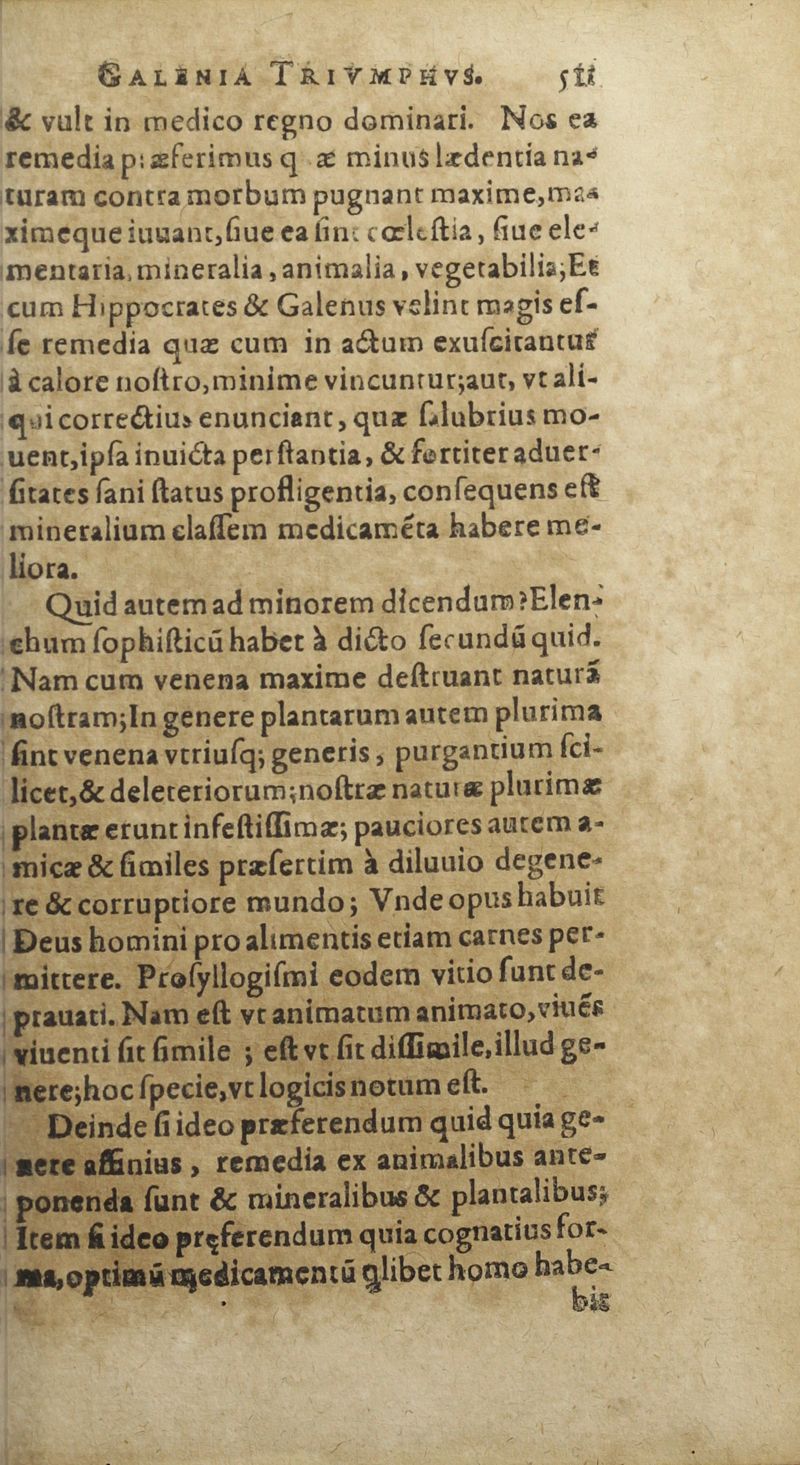 GALENIA TRIVMPHVS. 511
& vult in medico regno dominari. Nos ea
remedia pręferimus q æ minus lædentia na-
turam contra morbum pugnant maxime, ma-
ximeque iuuant, ſiue ea ſint cœleſtia, ſiue ele-
mentaria, mineralia, animalia, vegetabilia; Et
cum Hippocrates & Galenus velint magis eſ-
ſe remedia quæ cum in actum exuſcitantur
à calore noſtro, minime vincuntur; aut, vt ali-
qui correctius enunciant, quæ ſalubrius mo-
uent, ipſa inuicta perſtantia, & fortiter aduer-
ſitates ſani ſtatus profligentia, conſequens eſt
mineralium claſſem medicamēta habere me-
liora.
Quid autem ad minorem dicendum? Elen-
chum ſophiſticū habet à dicto ſecundū quid.
Nam cum venena maxime deſtruant naturā
noſtram; In genere plantarum autem plurima
ſint venena vtriuſq; generis, purgantium ſci-
licet, & deleteriorum; noſtræ naturæ plurimæ
plantæ erunt infeſtiſſimæ; pauciores autem a-
micæ & ſimiles præſertim à diluuio degene-
re & corruptiore mundo; Vnde opus habuit
Deus homini pro alimentis etiam carnes per-
mittere. Proſyllogiſmi eodem vitio ſunt de-
prauati. Nam eſt vt animatum animato, viuēs
viuenti ſit ſimile ; eſt vt ſit diſſimile, illud ge-
nere; hoc ſpecie, vt logicis notum eſt.
Deinde ſi ideo præferendum quid quia ge-
nere affinius, remedia ex animalibus ante-
ponenda ſunt & mineralibus & plantalibus;
Item ſi ideo pręferendum quia cognatius for-
ma, optimū medicamentū qlibet homo habe-
bit